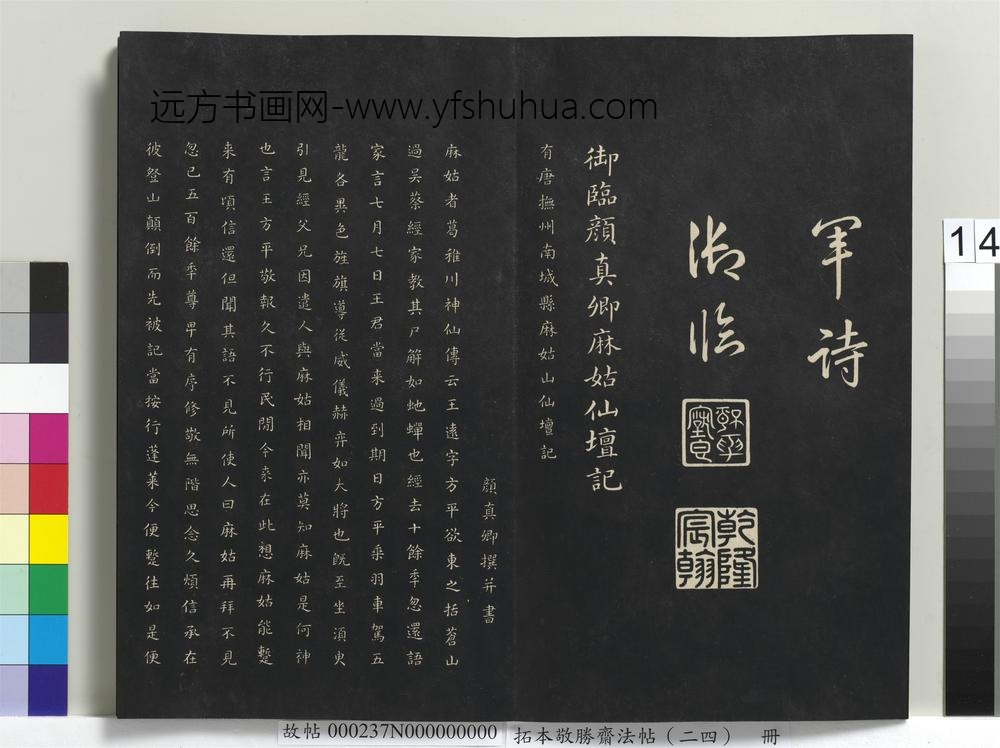 远方书画网-www.yfshuhua.com
軍詩
御臨
乾隆宸翰
御臨顏真卿麻姑仙壇記
有唐撫州南城縣麻姑山仙壇記
顏真卿撰并書
麻姑者葛稚川神仙傳云王遠字方平欲東之括蒼山
過吳蔡經家教其尸解如虵蟬也經去十餘秊忽還語
家言七月七日王君當来過到期日方平乘羽車駕五
龍各異色旌旗導從威儀赫弈如大將也既至坐須臾
引見經父兄因遣人與麻姑相聞亦莫知麻姑是何神
也言王方平敬報久不行民間今来在此想麻姑能蹔
来有頃信還但聞其語不見所使人曰麻姑再拜不見
忽已五百餘秊尊卑有序修敬無階思念久煩信承在
彼登山顛倒而先被記當按行蓬萊今便蹔往如是便
14
故帖 000237N000000000 拓本敬勝齋法帖（二四） 冊